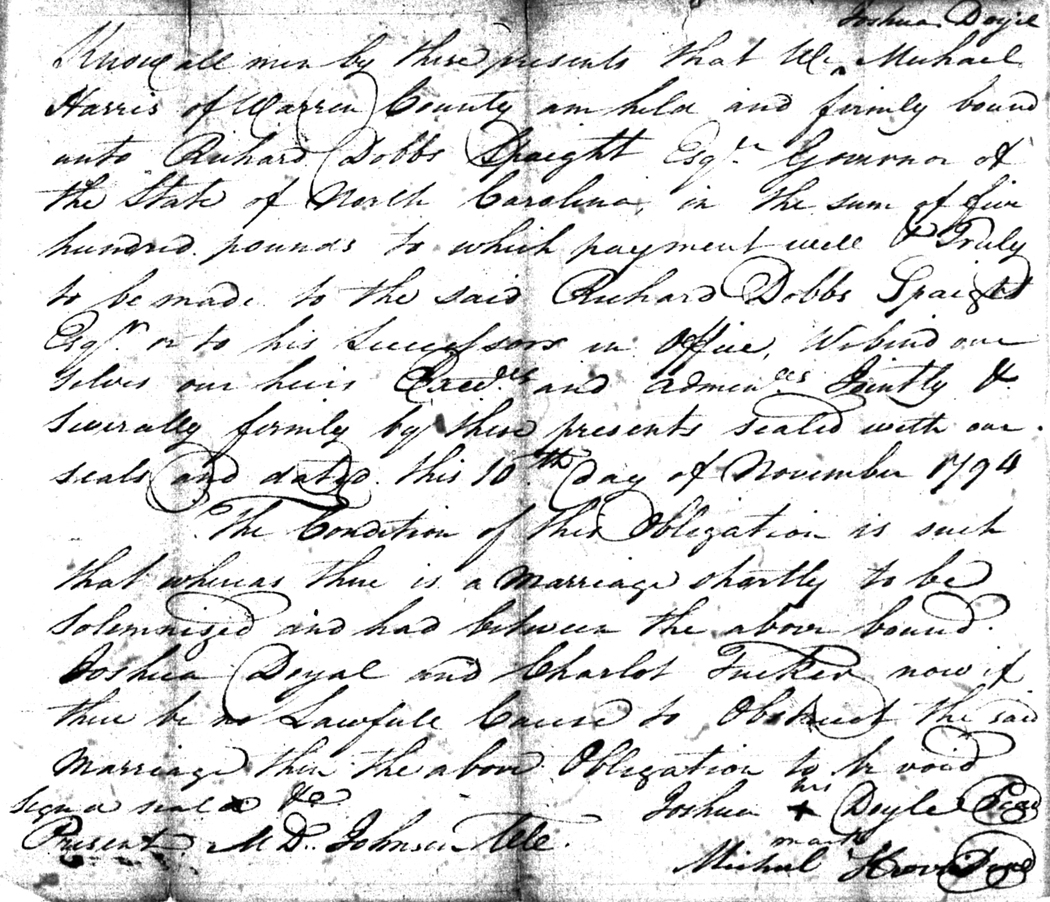 Joshua Doyle
Know all men by these presents that We, Michael
Harris of Warren County am held and firmly bound
unto Richard Dobbs Spaight Esqr. Governor of
the State of North Carolina, in the sum of five
hundred pounds to which payment well & Truly
to be made to the said Richard Dobbs Spaight
Esqr. or to his Successors in Office, We bind our
selves our heirs and admin Jointly &
severally firmly by these presents sealed with our
seals and dated this 10th day of November 1794
The Condition of this Obligation is such
that whereas there is a marriage shortly to be
Solemnized and had between the above bound
Joshua Doyal and Charlot Tucker now if
there be no Lawfull Cause to Obstruct the said
Marriage then the above Obligation to be void
Signd seald &c
Joshua his + Doyle
mark
Present M D. Johnson
Michal